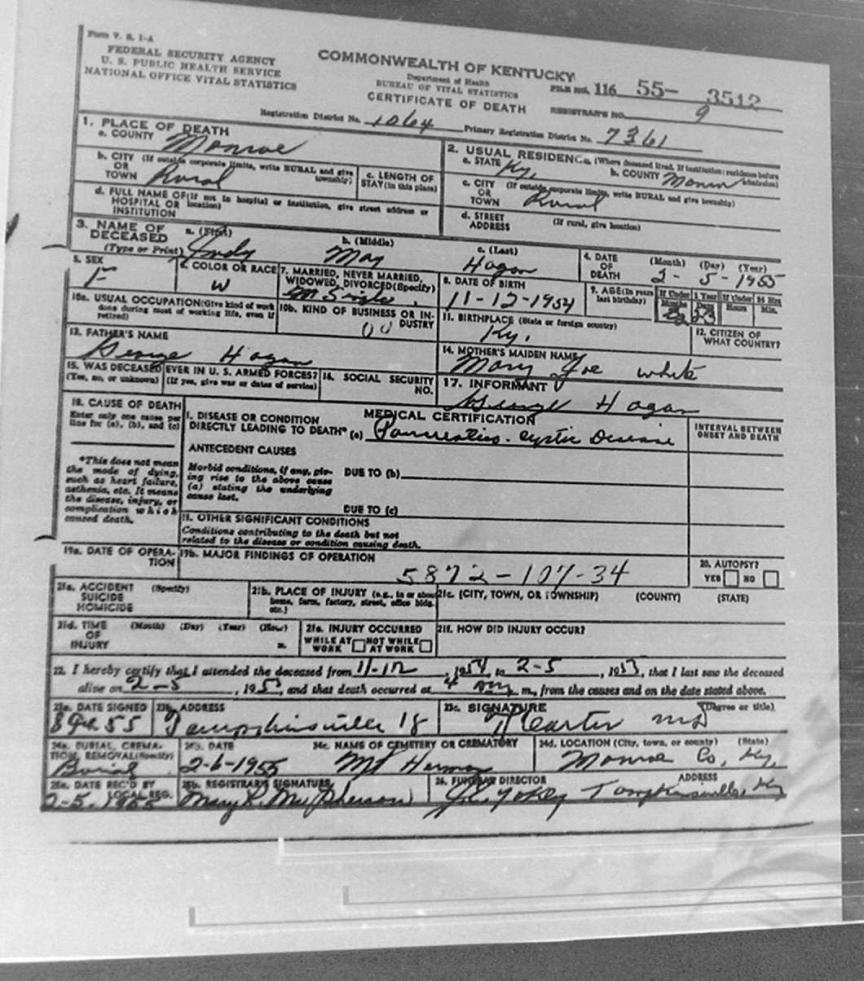 Form V. S. 1-A
FEDERAL SECURITY AGENCY
U. S. PUBLIC HEALTH SERVICE
NATIONAL OFFICE VITAL STATISTICS
COMMONWEALTH OF KENTUCKY
Department of Health
BUREAU OF VITAL STATISTICS
CERTIFICATE OF DEATH
FILE NO. 116 55- 3512
REGISTRAR'S NO. 9
Registration District No. 1064 Primary Registration District No. 7361
1. PLACE OF DEATH
a. COUNTY Monroe
b. CITY (If outside corporate limits, write RURAL and give township)
OR TOWN Rural
c. LENGTH OF STAY (in this place)
d. FULL NAME OF (If not in hospital or institution, give street address or location)
HOSPITAL OR INSTITUTION
2. USUAL RESIDENCE (Where deceased lived. If institution: residence before admission)
a. STATE Ky. b. COUNTY Monroe
c. CITY (If outside corporate limits, write RURAL and give township)
OR TOWN Rural
d. STREET ADDRESS (If rural, give location)
3. NAME OF DECEASED (Type or Print)
a. (First) Judy b. (Middle) May c. (Last) Hagan
4. DATE OF DEATH (Month) (Day) (Year) 2-5-1955
5. SEX F
6. COLOR OR RACE W
7. MARRIED, NEVER MARRIED, WIDOWED, DIVORCED (Specify) Single
8. DATE OF BIRTH 11-12-1954
9. AGE (In years last birthday) If Under 1 Year Months Days 2 23 If Under 24 Hrs. Hours Min.
10a. USUAL OCCUPATION (Give kind of work done during most of working life, even if retired)
10b. KIND OF BUSINESS OR INDUSTRY 00
11. BIRTHPLACE (State or foreign country) Ky.
12. CITIZEN OF WHAT COUNTRY?
13. FATHER'S NAME George Hagan
14. MOTHER'S MAIDEN NAME Mary Joe White
15. WAS DECEASED EVER IN U. S. ARMED FORCES?
(Yes, no, or unknown) (If yes, give war or dates of service)
16. SOCIAL SECURITY NO.
17. INFORMANT George Hagan
18. CAUSE OF DEATH
Enter only one cause per line for (a), (b), and (c)
MEDICAL CERTIFICATION
INTERVAL BETWEEN ONSET AND DEATH
I. DISEASE OR CONDITION DIRECTLY LEADING TO DEATH* (a) Pancreatico-cystic Disease
*This does not mean the mode of dying, such as heart failure, asthenia, etc. It means the disease, injury, or complication which caused death.
ANTECEDENT CAUSES
Morbid conditions, if any, giving rise to the above cause (a) stating the underlying cause last.
DUE TO (b)
DUE TO (c)
II. OTHER SIGNIFICANT CONDITIONS
Conditions contributing to the death but not related to the disease or condition causing death.
19a. DATE OF OPERATION
19b. MAJOR FINDINGS OF OPERATION
5872-107-34
20. AUTOPSY?
YES NO
21a. ACCIDENT SUICIDE HOMICIDE (Specify)
21b. PLACE OF INJURY (e.g., in or about home, farm, factory, street, office bldg. etc.)
21c. (CITY, TOWN, OR TOWNSHIP) (COUNTY) (STATE)
21d. TIME OF INJURY (Month) (Day) (Year) (Hour) m.
21e. INJURY OCCURRED
WHILE AT WORK NOT WHILE AT WORK
21f. HOW DID INJURY OCCUR?
22. I hereby certify that I attended the deceased from 11-12, 1954, to 2-5, 1953, that I last saw the deceased
alive on 2-5, 195, and that death occurred at 4 m., from the causes and on the date stated above.
23a. DATE SIGNED 8 Feb 55
23b. ADDRESS Tompkinsville
23c. SIGNATURE Carter MD (Degree or title)
24a. BURIAL, CREMATION, REMOVAL (Specify) Burial
24b. DATE 2-6-1955
24c. NAME OF CEMETERY OR CREMATORY Mt Hermon
24d. LOCATION (City, town, or county) (State) Monroe Co, Ky.
25a. DATE REC'D BY LOCAL REG. 2-5. 1955
25b. REGISTRAR'S SIGNATURE Mary McPherson
26. FUNERAL DIRECTOR ADDRESS
Yokley Tompkinsville, Ky